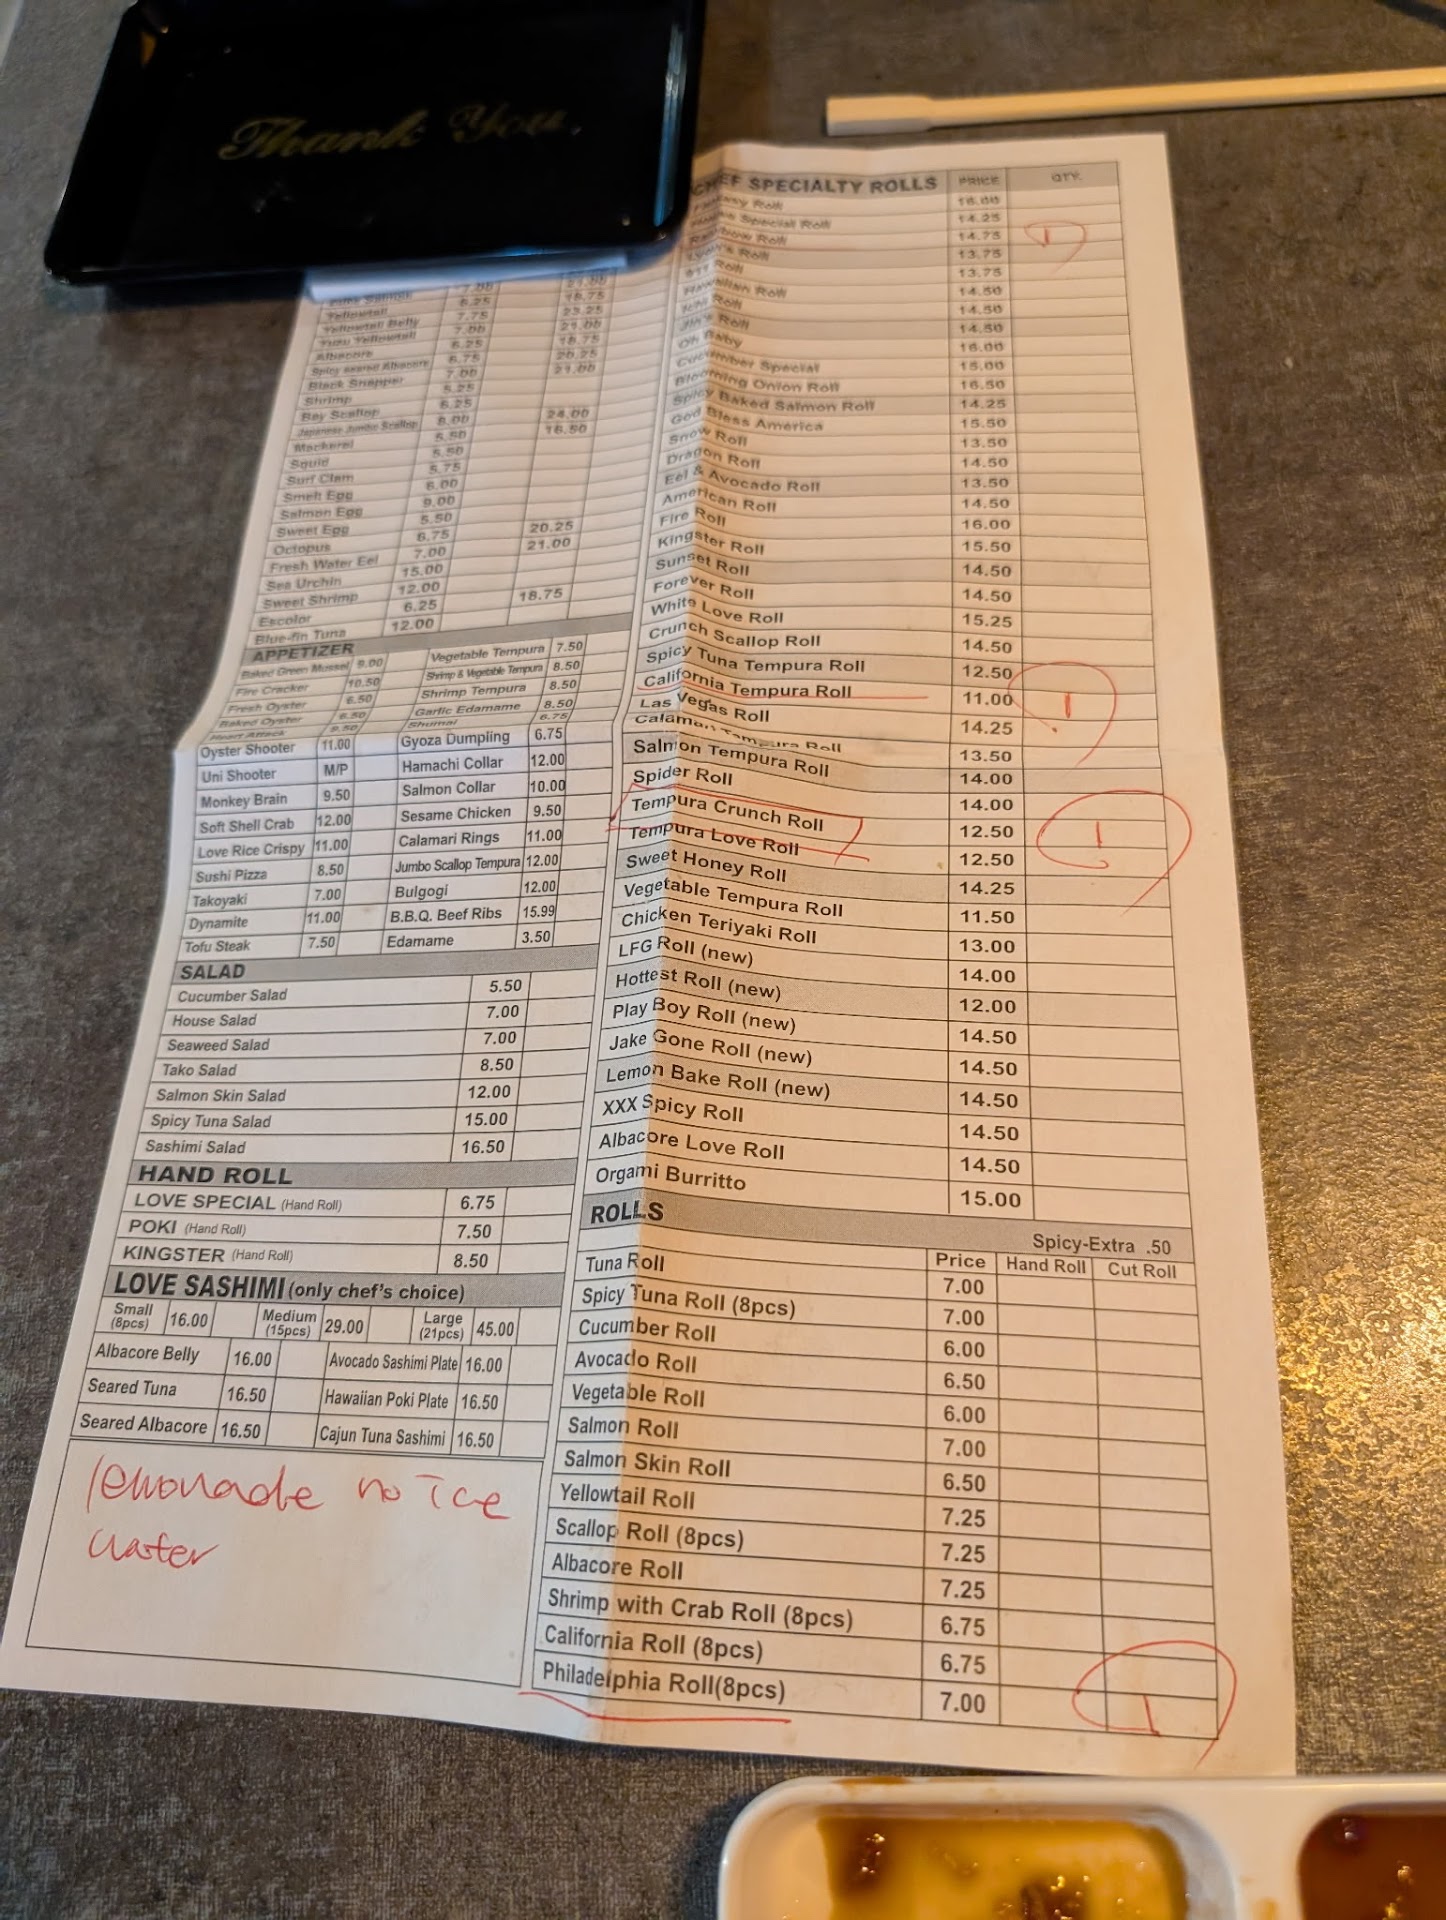 Thank You
Salmon 7.00 21.00
Yellowtail 6.25 18.75
Yellowtail Belly 7.75 23.25
Yuzu Yellowtail 7.00 21.00
Albacore 6.25 18.75
Spicy Seared Albacore 6.75 20.25
Black Snapper 7.00 21.00
Shrimp 5.25
Bay Scallop 6.25
Japanese Jumbo Scallop 8.00 24.00
Mackerel 5.50 16.50
Squid 5.50
Surf Clam 5.75
Smelt Egg 6.00
Salmon Egg 9.00
Sweet Egg 5.50
Octopus 6.75 20.25
Fresh Water Eel 7.00 21.00
Sea Urchin 15.00
Sweet Shrimp 12.00
Escolor 6.25 18.75
Blue-fin Tuna 12.00
APPETIZER
Baked Green Mussel 9.00 Vegetable Tempura 7.50
Fire Cracker 10.50 Shrimp & Vegetable Tempura 8.50
Fresh Oyster 6.50 Shrimp Tempura 8.50
Baked Oyster 6.50 Garlic Edamame 8.50
Heart Attack 9.50 Shumai 6.75
Oyster Shooter 11.00 Gyoza Dumpling 6.75
Uni Shooter M/P Hamachi Collar 12.00
Monkey Brain 9.50 Salmon Collar 10.00
Soft Shell Crab 12.00 Sesame Chicken 9.50
Love Rice Crispy 11.00 Calamari Rings 11.00
Sushi Pizza 8.50 Jumbo Scallop Tempura 12.00
Takoyaki 7.00 Bulgogi 12.00
Dynamite 11.00 B.B.Q. Beef Ribs 15.99
Tofu Steak 7.50 Edamame 3.50
SALAD
Cucumber Salad 5.50
House Salad 7.00
Seaweed Salad 7.00
Tako Salad 8.50
Salmon Skin Salad 12.00
Spicy Tuna Salad 15.00
Sashimi Salad 16.50
HAND ROLL
LOVE SPECIAL (Hand Roll) 6.75
POKI (Hand Roll) 7.50
KINGSTER (Hand Roll) 8.50
LOVE SASHIMI (only chef's choice)
Small (8pcs) 16.00 Medium (15pcs) 29.00 Large (21pcs) 45.00
Albacore Belly 16.00 Avocado Sashimi Plate 16.00
Seared Tuna 16.50 Hawaiian Poki Plate 16.50
Seared Albacore 16.50 Cajun Tuna Sashimi 16.50
lemonade no ice
water
CHEF SPECIALTY ROLLS PRICE QTY.
Roll 16.00
Special Roll 14.25
Rainbow Roll 14.75 1
Roll 13.75
911 Roll 13.75
Hawaiian Roll 14.50
Roll 14.50
Jin's Roll 14.50
Oh Baby 16.00
Cucumber Special 15.00
Blooming Onion Roll 16.50
Spicy Baked Salmon Roll 14.25
God Bless America 15.50
Snow Roll 13.50
Dragon Roll 14.50
Eel & Avocado Roll 13.50
American Roll 14.50
Fire Roll 16.00
Kingster Roll 15.50
Sunset Roll 14.50
Forever Roll 14.50
White Love Roll 15.25
Crunch Scallop Roll 14.50
Spicy Tuna Tempura Roll 12.50
California Tempura Roll 11.00 1
Las Vegas Roll 14.25
Calamari Tempura Roll 13.50
Salmon Tempura Roll 14.00
Spider Roll 14.00
Tempura Crunch Roll 12.50 1
Tempura Love Roll 12.50
Sweet Honey Roll 14.25
Vegetable Tempura Roll 11.50
Chicken Teriyaki Roll 13.00
LFG Roll (new) 14.00
Hottest Roll (new) 12.00
Play Boy Roll (new) 14.50
Jake Gone Roll (new) 14.50
Lemon Bake Roll (new) 14.50
XXX Spicy Roll 14.50
Albacore Love Roll 14.50
Orgami Burritto 15.00
ROLLS Spicy-Extra .50
Price Hand Roll Cut Roll
Tuna Roll 7.00
Spicy Tuna Roll (8pcs) 7.00
Cucumber Roll 6.00
Avocado Roll 6.50
Vegetable Roll 6.00
Salmon Roll 7.00
Salmon Skin Roll 6.50
Yellowtail Roll 7.25
Scallop Roll (8pcs) 7.25
Albacore Roll 7.25
Shrimp with Crab Roll (8pcs) 6.75
California Roll (8pcs) 6.75
Philadelphia Roll(8pcs) 7.00 1